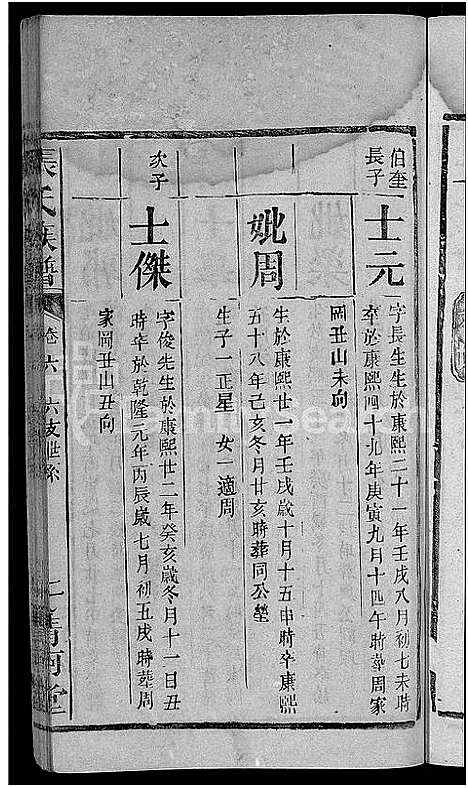 伯奎
長子
士元
字長生生於康熙二十一年壬戌八月初七未時
卒於康熙四十九年庚寅九月十四午時葬周家
岡丑山未向
妣周
生於康熙廿一年壬戌歲十月十五申時卒康熙
五十八年己亥冬月廿亥時葬同公塋
生子一正星 女一適周
次子
士傑
字俊先生於康熙廿二年癸亥歲冬月十一日丑
時卒於乾隆元年丙辰歲七月初五戌時葬周
家岡丑山丑向
張氏族譜
卷六 六支世系
清河堂